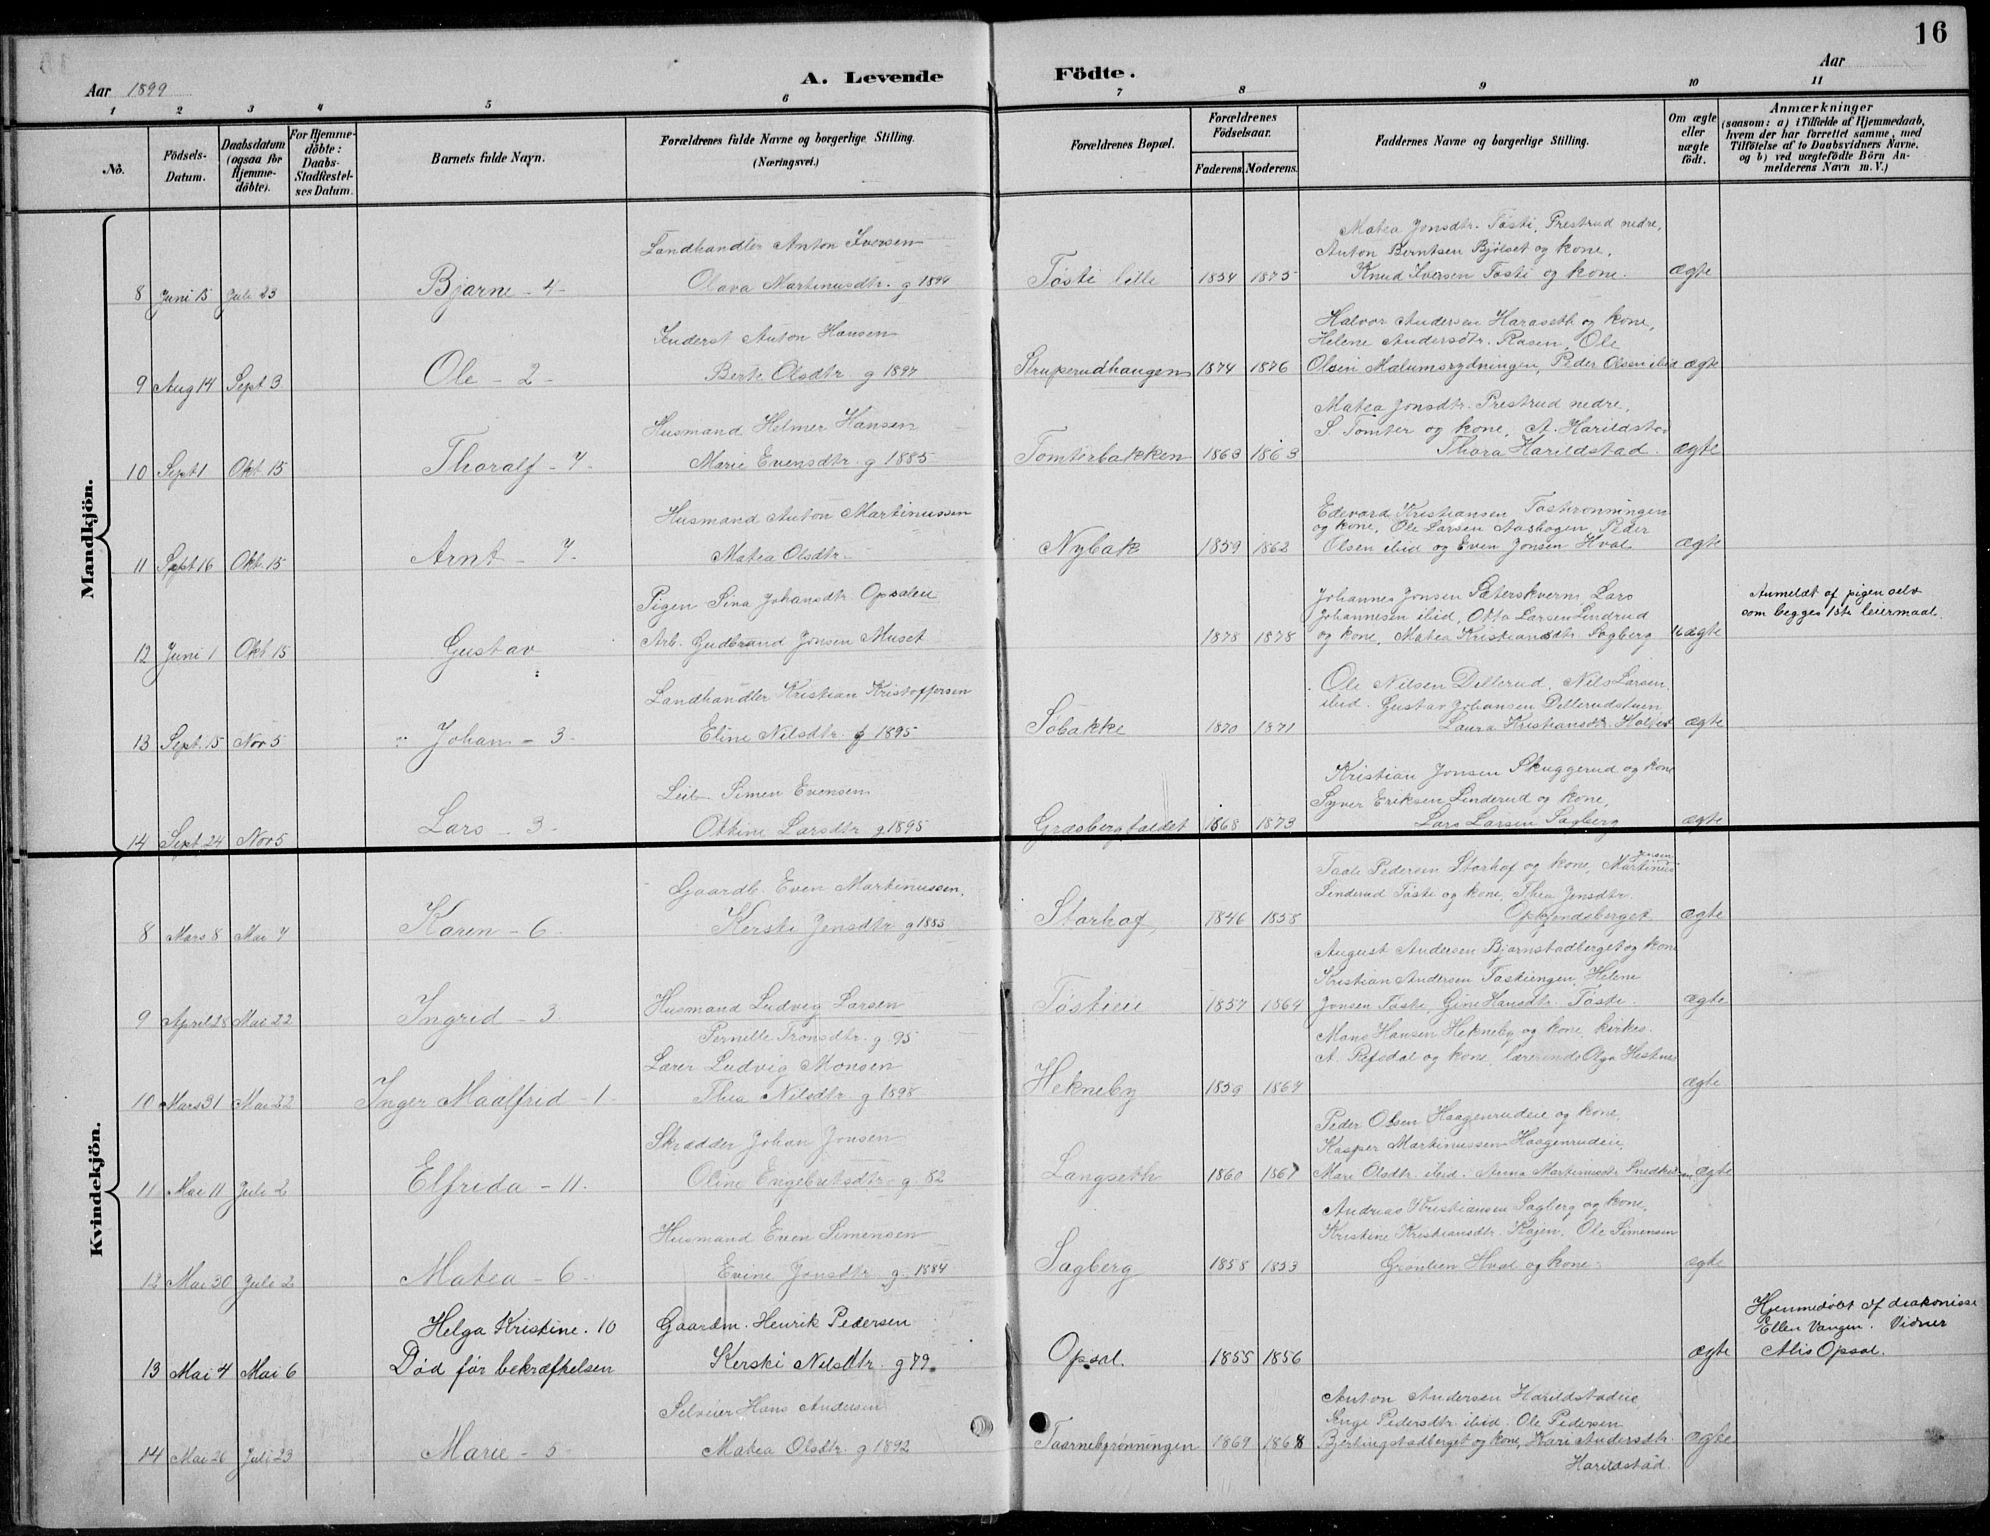 16
Aar 1899
A. Levende Födte.
Aar
1 2 3 4 5 6 7 8 9 10 11
No.
Födsels-Datum.
Daabsdatum (ogsaa for Hjemmedöbte).
For Hjemmedöbte: Daabs-Stadfæstelses Datum.
Barnets fulde Navn.
Forældrenes fulde Navne og borgerlige Stilling.
(Næringsvei.)
Forældrenes Bopæl.
Forældrenes Födselsaar.
Faderens. Moderens.
Faddernes Navne og borgerlige Stilling.
Om ægte eller uægte födt.
Anmærkninger
(saasom: a) i Tilfælde af Hjemmedaab,
hvem der har forrettet samme, med
Tilföielse af to Daabsvidners Navne.
og b) ved uægtefödte Börn An-
melderens Navn m.V.)
Mandkjön.
Landhandler Anton Iversen
Matea Jonsdtr. Tøsti, Prestrud nedre,
Anton Berntsen Bjølset og kone,
8 Juni 15 Juli 23 Bjarne - 4 - Olava Martinusdtr. g 1894 Tøsti lille 1854 1875 Knud Iversen Tøsti og kone. ægte
Inderst Anton Hansen
Halvor Andersen Haraseth og kone,
Helene Andersdtr. Rasen, Ole
9 Aug 14 Sept 3 Ole - 2 - Berte Olsdtr g 1897 Struperudhaugen 1874 1876 Olsen Malumsrydningen, Peder Olsen ibid ægte
Husmand Helmer Hansen
Matea Jonsdtr. Prestrud nedre,
S. Tomter og kone, A. Harildstad
10 Sept 1 Okt 15 Thoralf - 7 - Marie Evensdtr. g 1885 Tomterbakken 1863 1863 Thora Harildstad. ægte
Husmand Anton Martinussen
Edevard Kristiansen Tøstirønningen
og kone, Ole Larsen Aashøgen, Peder
11 Sept 16 Okt. 15 Arnt - 7. Matea Olsdtr. Nybak 1859 1862 Olsen ibid og Even Jonsen Hval ægte
Pigen Sina Johansdtr. Opsalen
Johannes Jonsen Sæterskvern, Lars
Johannesen ibid, Otto Larsen Linderud
Anmeldt af pigen selv
som begges 1ste leiermaal.
12 Juni 1 Okt 15 Gustav Arb. Gudbrand Jonsen Muset 1878 1878 og kone, Matea Kristiansdtr. Sagberg uægte
Landhandler Kristian Kristoffersen
Ole Nilsen Dillerud, Nils Larsen
ibid. Gustav Johansen Dillerudstuen,
13 Sept. 15 Nov 5 Johan - 3 Eline Nilsdtr g 1895 Søbakke 1870 1871 Laura Kristiansdtr. ægte
Leil. Simen Evensen
Kristian Jonsen Skuggerud og kone
Syver Eriksen Linderud og kone,
14 Sept. 24 Nov 5 Lars - 3 - Ottine Larsdtr g 1895 Græsbergfaldet 1868 1873 Lars Larsen Sagberg ægte
Kvindekjön.
Gaardb. Even Martinussen.
Taale Pedersen Storhof og kone, Martinus Jensen
Linderud Tøsti og kone, Thea Jensdtr.
8 Mars 8 Mai 7 Karen - 6 Kersti Jensdtr g 1883 Storhof 1846 1858 ægte
August Andersen Bjørnstadberget og kone
Husmand Ludvig Larsen
Kristian Andersen Tøstiengen, Helene
9 April 28 Mai 22 Ingrid - 3 Pernille Tronsdtr. g. 95 Tøstieie 1857 1864 Jonsen Tøsti, Gine Hansdtr. Tøsti. ægte
Lærer Ludvig Monsen
Mons Hansen Hekneby og kone, kirkes.
A. Refsdal og kone, lærerinde Olga Hestnes
10 Mars 31 Mai 22 Inger Maalfrid - 1. Thea Nilsdtr g 1898 Hekneby 1859 1864 ægte
Skrædder Johan Jonsen
Peder Olsen Haagenrudeie og kone,
Kasper Martinussen Haagenrudeie,
11 Mai 11 Juli 2 Elfrida - 11. Oline Engebretsdtr. g. 82 Langseth 1860 1861 Mari Olsdtr. ibid. Anna Martinusdtr. ægte
Husmand Even Simensen
Andreas Kristiansen Sagberg og kone,
Kristine Kristiansdtr. Kajen, Ole Simensen
12 Mai 30 Juli 2 Matea - 6 - Evine Jonsdtr g. 1884 Sagberg 1858 1853 Grønlien Hval og kone. ægte
Helga Kristine. 10 Gaardm. Henrik Pedersen
Hjemmedøbt af diakonisse
Ellen Vangen. Vidner
13 Mai 4 Mai 6 Død før bekræftelsen Kersti Nilsdtr. g 79. Opsal. 1855 1856 ægte Alis Opsal.
Selveier Hans Andersen
Anton Andersen Harildstadeie
Inge Pedersdtr ibid. Ole Pedersen
14 Mai 26 Juli 23 Marie - 5 - Matea Olsdtr. g 1892 Taarnebyrønningen 1869 1868 Bjertingstadberget og kone, Kari Andersdtr. ægte
Harildstad.